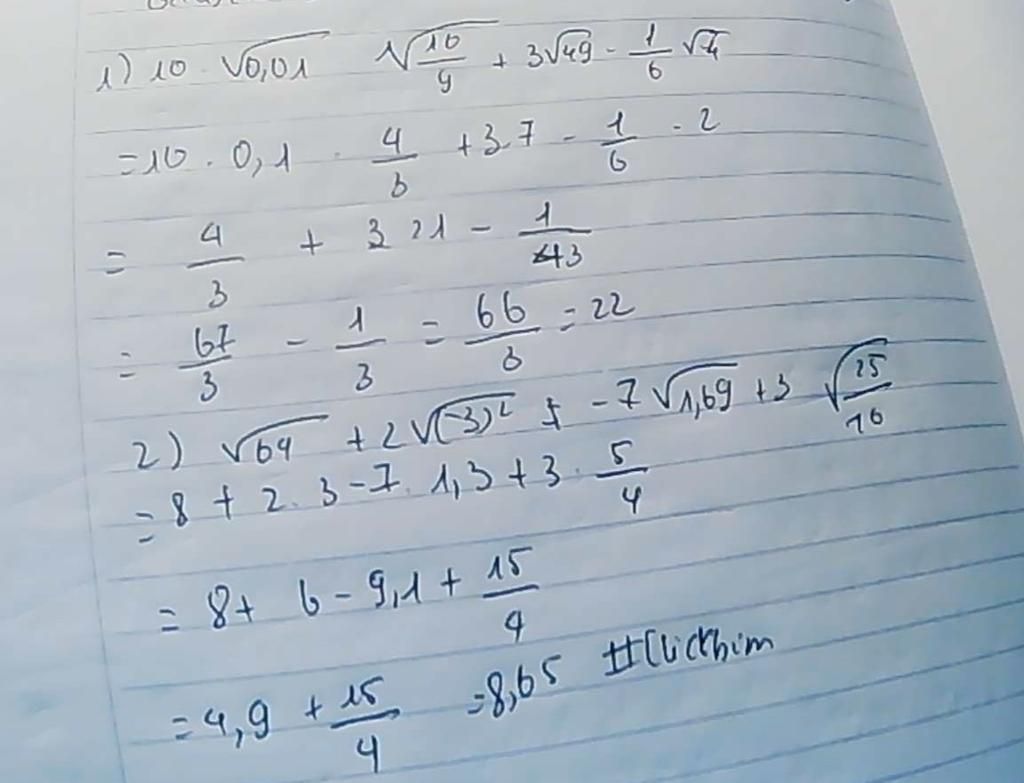 1) 10 . √0,01 √16/9 + 3√49 - 1/6 √4
= 10 . 0,1 . 4/3 + 3.7 - 1/6 . 2
= 4/3 + 21 - 1/3
= 67/3 - 1/3 = 66/3 = 22
2) √64 + 2√(-3)² - 7√1,69 + 3 √25/16
= 8 + 2. 3 - 7. 1,3 + 3 . 5/4
= 8 + 6 - 9,1 + 15/4
= 4,9 + 15/4 = 8,65